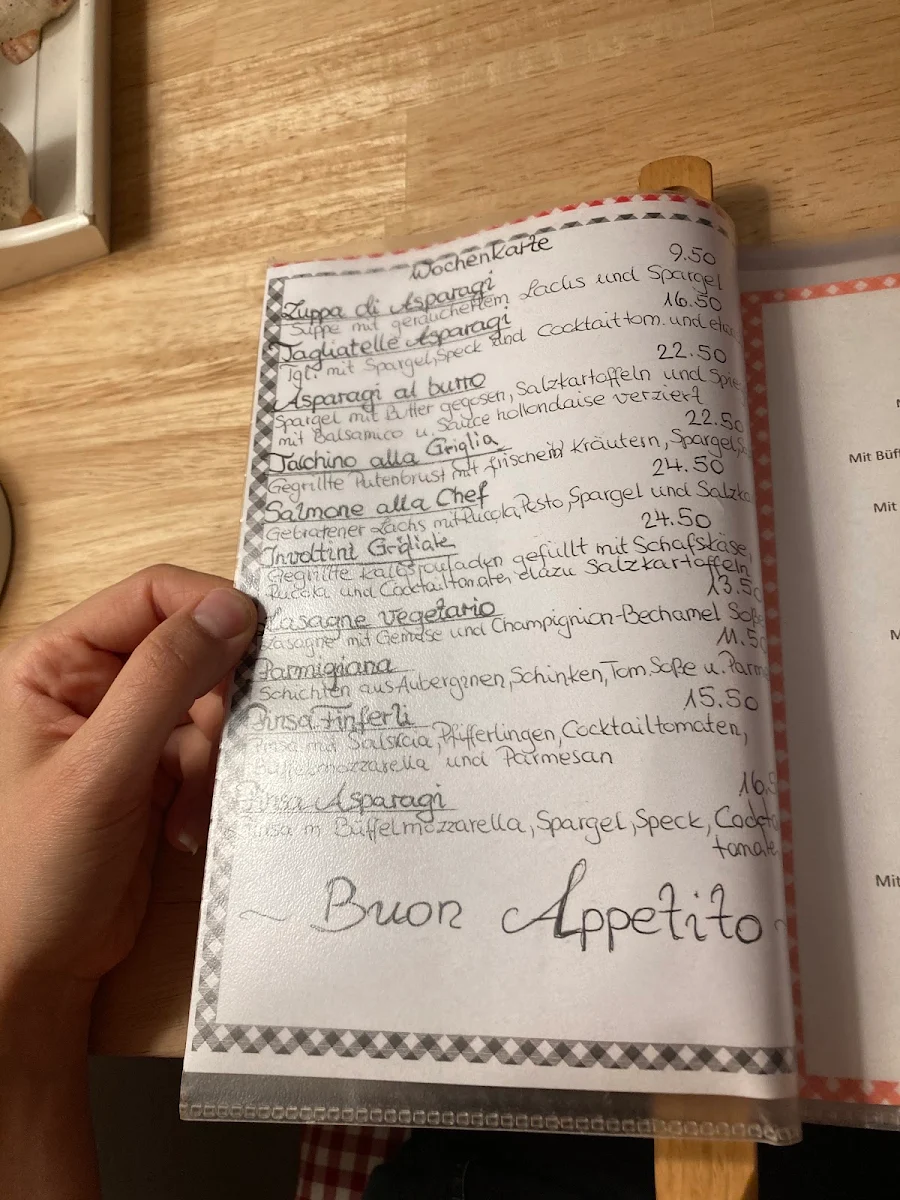 Wochenkarte
Zuppa di Asparagi 9.50
Suppe mit geräuchertem Lachs und Spargel
Tagliatelle Asparagi 16.50
Tgl. mit Spargel, Speck und Cocktailtom. und
Asparagi al burro 22.50
Spargel mit Butter gegosen, Salzkartoffeln und
mit Balsamico u. Sauce hollondaise verziert
Tacchino alla Griglia 22.50
Gegrillte Putenbrust mit frischem Kräutern, Spargel,
Salmone alla Chef 24.50
Gebratener Lachs mit Rucola, Pesto, Spargel und
Involtini Grigliate 24.50
Gegrillte Kalbsrouladen gefüllt mit Schafskäse,
Rucola und Cocktailtomaten, dazu Salzkartoffeln
Lasagne vegetario 13.50
Lasagne mit Gemüse und Champignion-Bechamel Soße
Parmigiana 11.50
Schichten aus Auberginen, Schinken, Tom. Soße u.
Pinsa Finferli 15.50
Pinsa mit Salsicia, Pfifferlingen, Cocktailtomaten,
Büffelmozzarella und Parmesan
Pinsa Asparagi
Pinsa m Büffelmozzarella, Spargel, Speck,
~ Buon Appetito ~
Mit
Mit